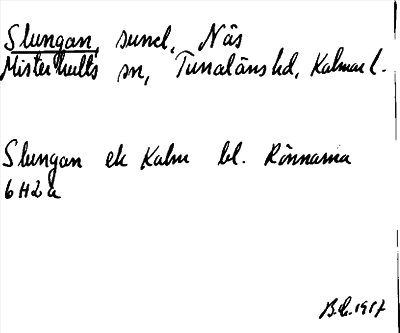 Slungan, sund, Näs
Misterhults sn, Tunaläns hd, Kalmar l.
Slungan ek Kalm bl. Rönnarna
6 H 2 a
1957